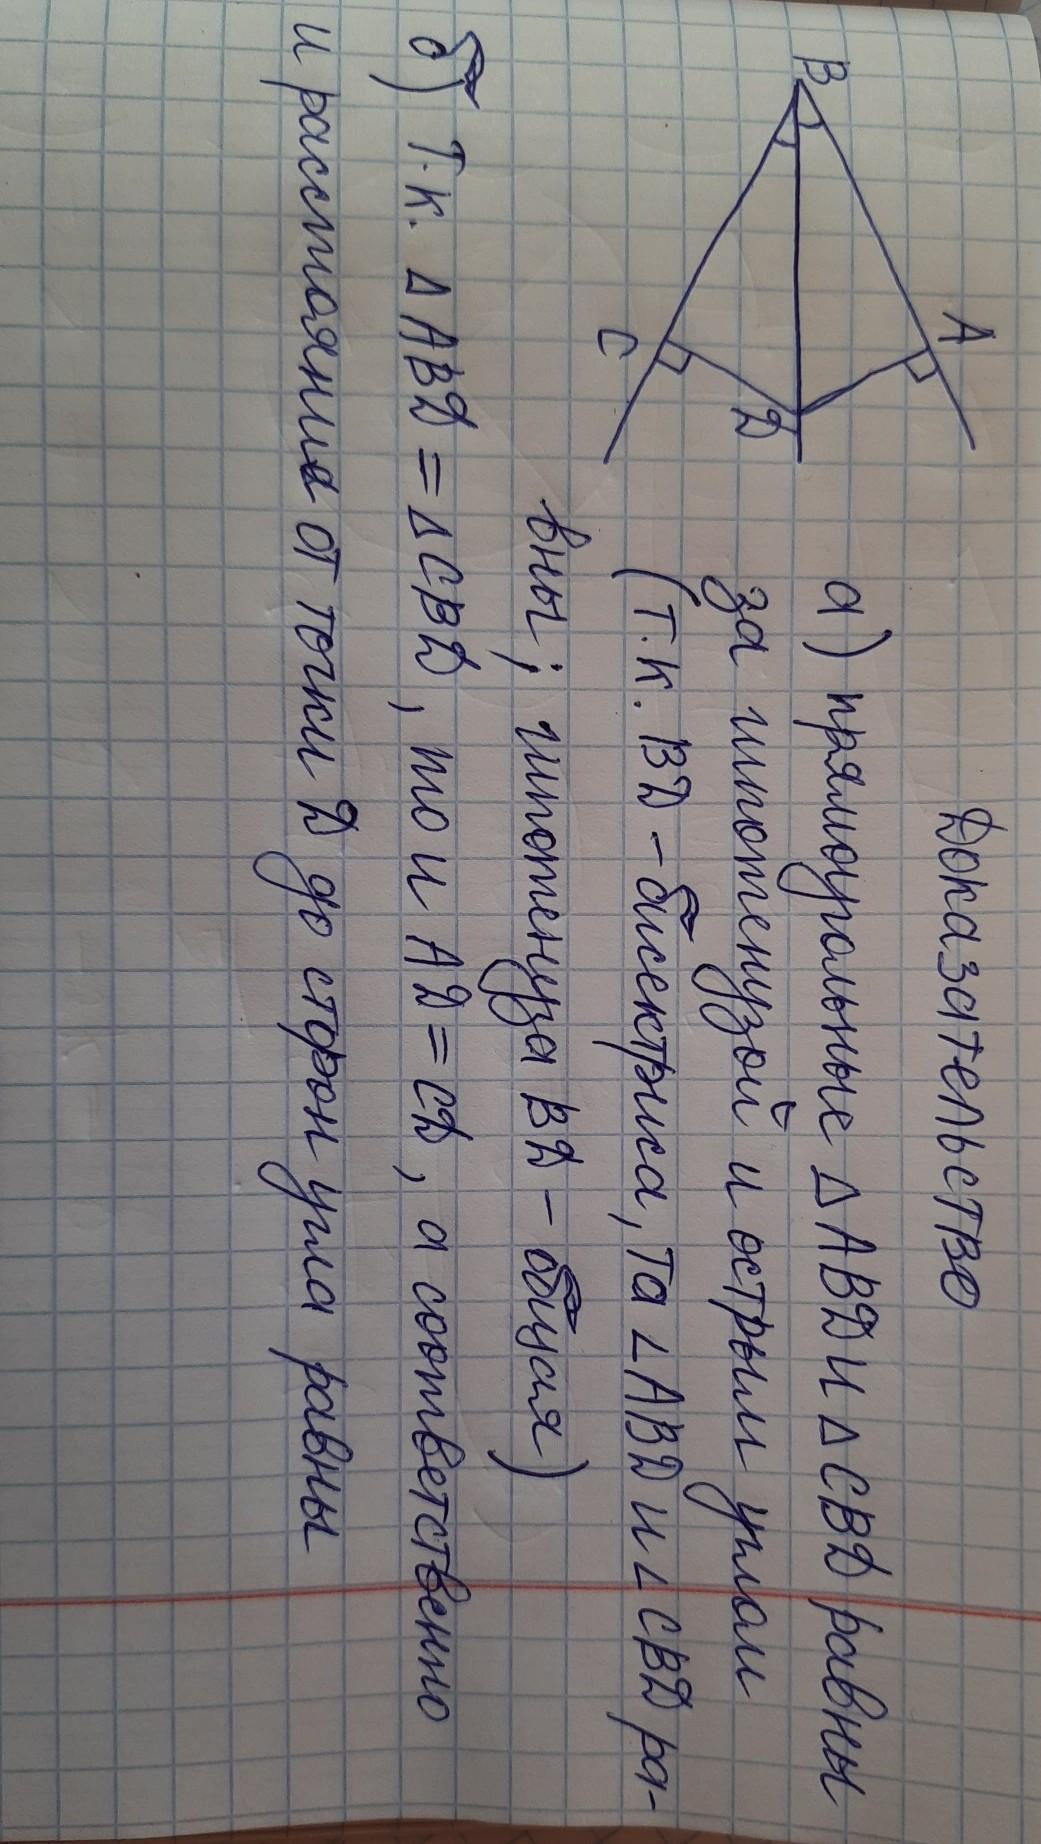 Доказательство
B
A
C
D
а) прямоугольные Δ ABD и Δ CBD равны
за гипотенузой и острым углом
(т.к. BD - бисектриса, та ∠ABD и ∠CBD ра-
вны; гипотенуза BD - общая)
б) Т.к. Δ ABD = Δ CBD, то и AD = CD, а соответственно
и расстояния от точки D до сторон угла равны